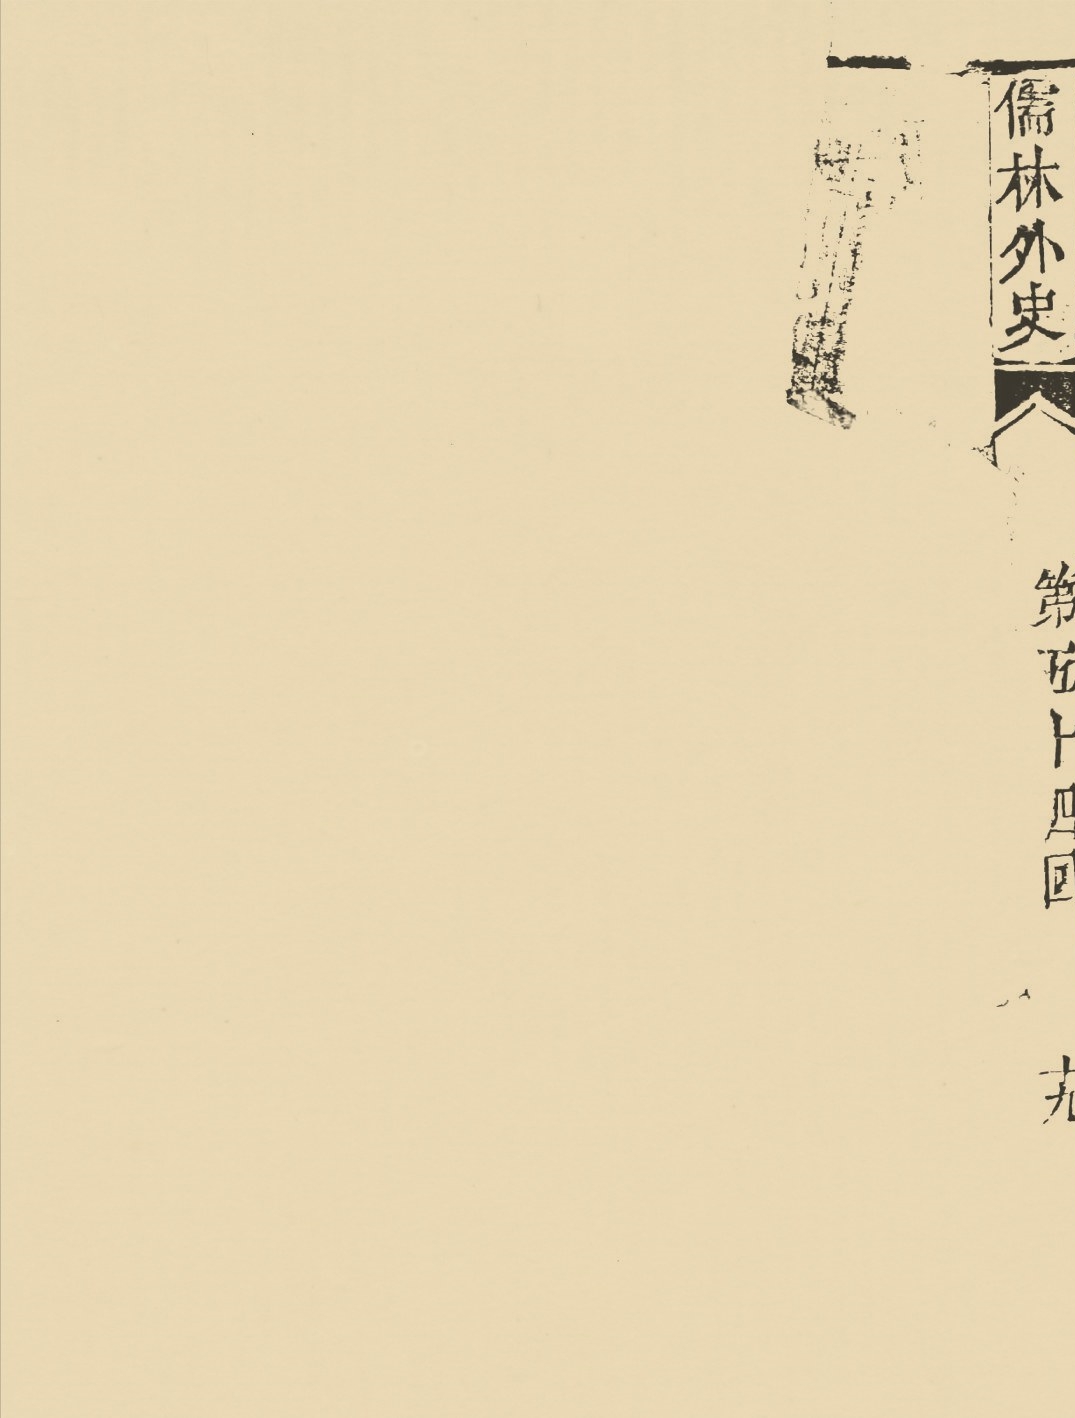 儒林外史
第五十四回